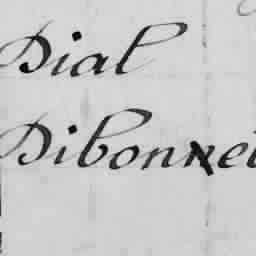 Dial
Dibonnet